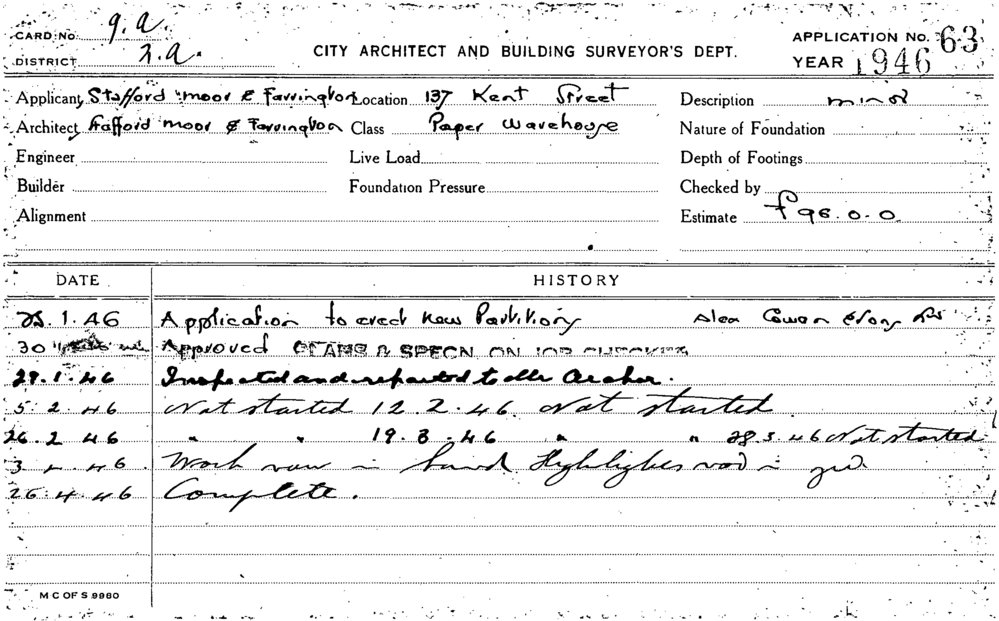 CARD No. 9.a.
DISTRICT 2.a.
CITY ARCHITECT AND BUILDING SURVEYOR'S DEPT.
APPLICATION No. 63
YEAR 1946
Applicant Stafford moor & Farrington Location 137 Kent Street Description minor
Architect Stafford moor & Farrington Class Paper Warehouse Nature of Foundation
Engineer Live Load Depth of Footings
Builder Foundation Pressure Checked by
Alignment Estimate £96.0.0
DATE HISTORY
25.1.46 Application to erect new Partitions Alex Cowan
30 Approved PLANS & SPECN. ON JOB CHECKED
29.1.46 Inspected and reported to Mr Archer.
5.2.46 Not started 12.2.46. Not started
26.2.46 " " 19.3.46 " " 28.3.46 Not started
3.4.46. Work now in hand
26.4.46 Complete.
M C OF S 9980